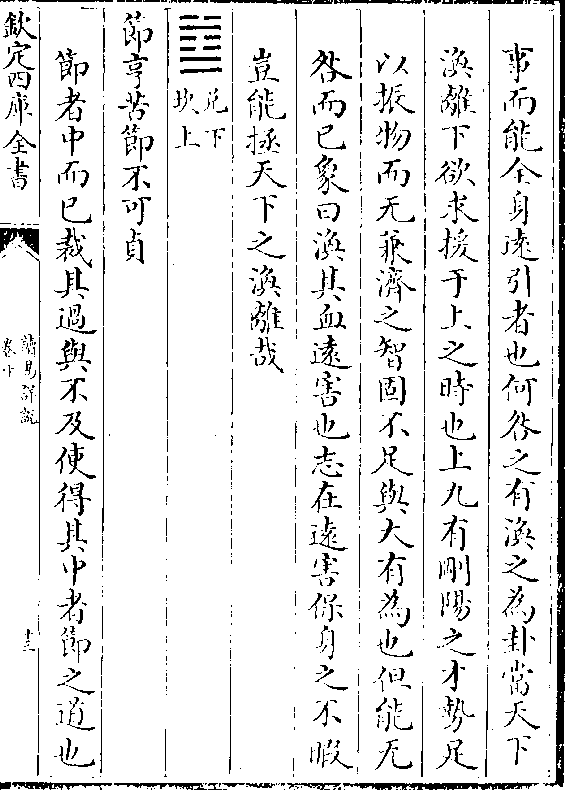 事而能全身逺引者也何咎之有渙之為卦當天下
渙離下欲求援于上之時也上九有剛陽之才勢足
以振物而无兼濟之智固不足與大有為也但能无
咎而已象曰渙其血逺害也志在逺害保身之不暇
豈能拯天下之渙離哉
兌下
坎上
節亨苦節不可貞
節者中而已裁其過與不及使得其中者節之道也
欽定四庫全書
讀易詳說
卷十
十三